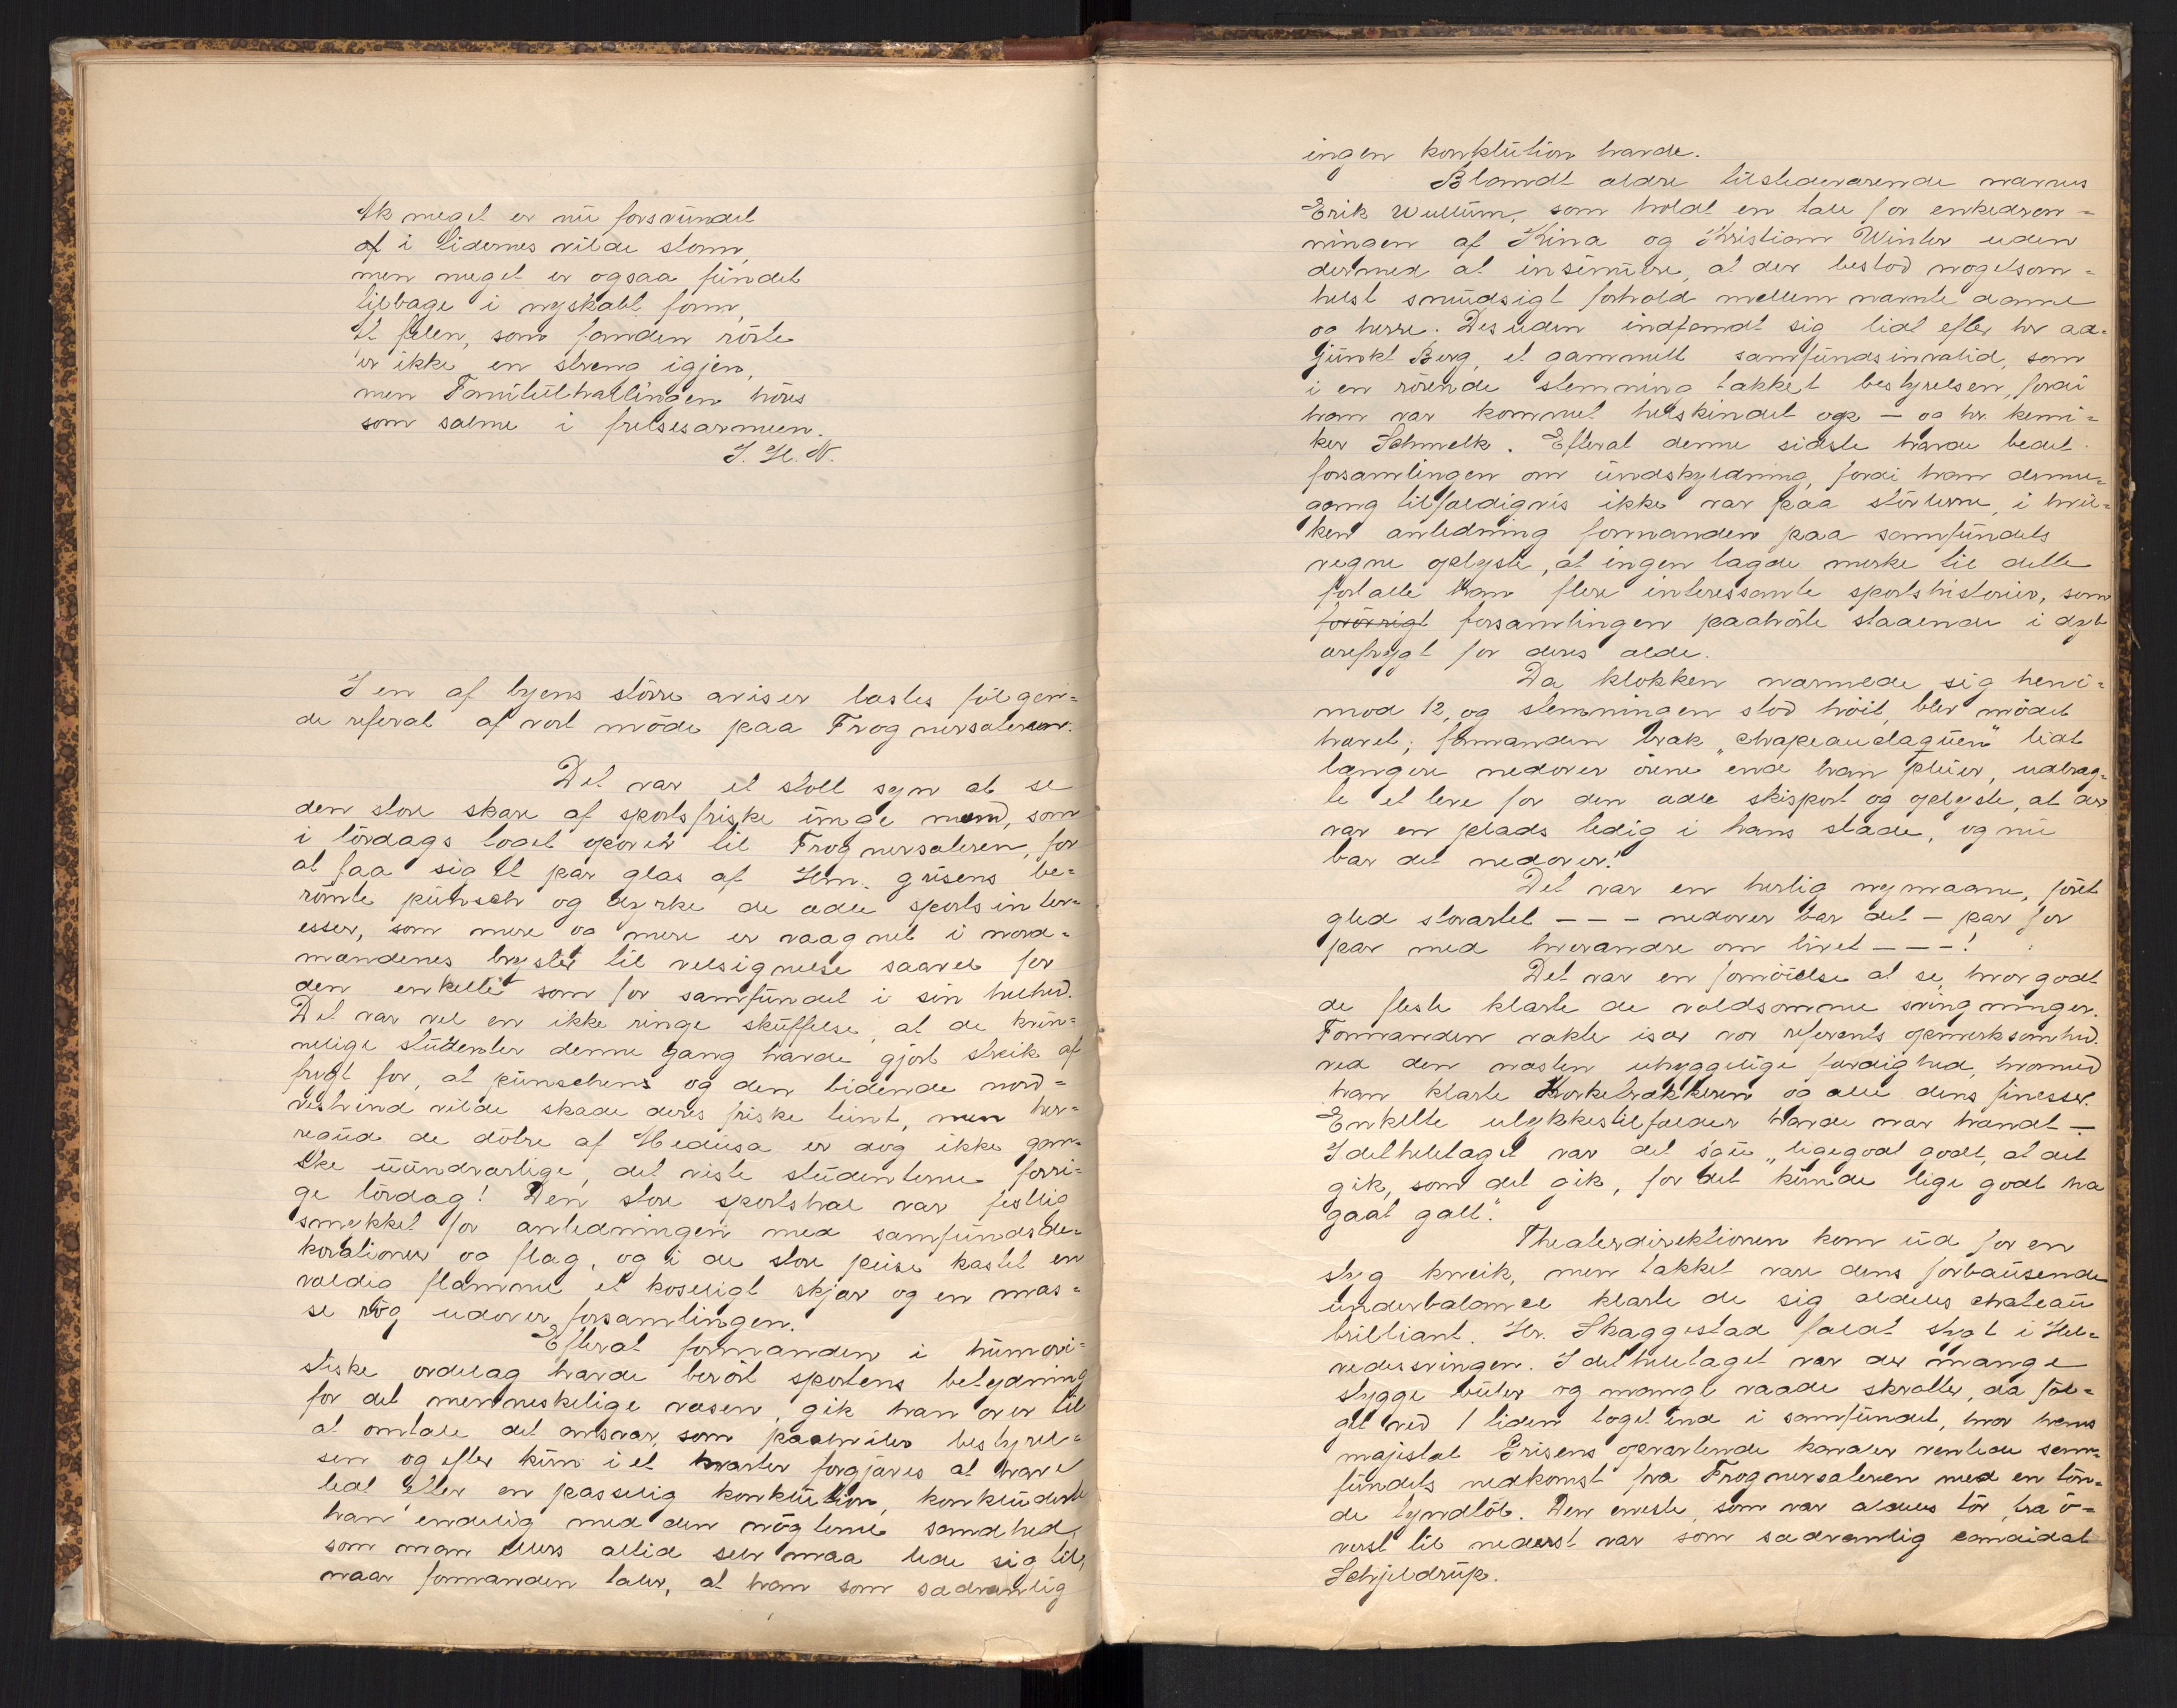 Ak meget er nu forsvundet
af i tidernes vilde storm,
men meget er ogsaa fundet
tilbage i nyskabt form,
At felen, som fanden rörte
er ikke en streng igjen,
men Fanitulhallingen höres
som salme i frelsesarmeen.
J. H. N.
I en af byens större aviser læstes fölgen-
de referat af vort möde paa Frognersæteren.
Det var et stolt syn at se
den store skare af sportsfriske unge mænd, som
i lördags toget opover til Frognersæteren, for
at faa sig et par glas af Hm. grisens be-
römte punsch og dyrke de ædle sportsinter-
esser, som mere og mere er vaagnet i nord-
mændenes bryster til velsignelse saavel for
den enkelte som for samfundet i sin helhed.
Det var vel en ikke ringe skuffelse, at de kvin-
nelige studenter denne gang havde gjort streik af
frygt for, at punschens og den bidende nord-
vestvind vilde skade deres friske teint, men her-
regud de dötre af Medusa er dog ikke gan-
ske uundværlige, det viste studenterne forri-
ge lördag! Den store sportshal var festlig
smykket for anledningen med samfundsde-
korationer og flag, og i de store peise kastet en
vældig flamme et koseligt skjær og en mas-
se rög udover forsamlingen.
Efterat formanden i humori-
stiske ordelag havde berört sportens betydning
for det menneskelige væsen, gik han over til
at omtale det ansvar, som paahviler bestyrel-
sen og efter kun i et kvarter forgjæves at have
ledt efter en passelig konklution, konkluderte
han endelig med den nögterne sandhed,
som man ellers altid selv maa lede sig til,
naar formanden taler, at han som sædvanlig
ingen konklution havde.
Blandt ældre tilstedeværende nævnes
Erik Wullum, som holdt en tale for enkedron-
ningen af Kina og Kristian Winter uden
dermed at insinuere, at der bestod nogetsom-
helst smudsigt forhold mellem nævnte dame
og herre. Desuden indfandt sig lidt efter hr ad-
junkt Berg, et gammelt samfundsinvalid, som
i en rörende stemning takket bestyrelsen, fordi
han var kommet helskindet op – og hr. kemi-
ker Schmelk. Efterat denne sidste havde bedet
forsamlingen om undskyldning, fordi han denne-
gang tilfældigvis ikke var paa stövlerne, i hvil-
ken anledning formanden paa samfundets
vegne oplyste, at ingen lagde merke til dette
fortalte han flere interessante sportshistorier, som
forövrigt forsamlingen paahörte staaende i dyb
ærefrygt for deres ælde.
Da klokken nærmede sig heni-
mod 12, og stemningen stod höit, blev mödet
hævet; formanden trak „chapeauclaquen" lidt
længere nedover örene end han pleier, udbrag-
te et leve for den ædle skisport og oplyste, at der
var en plads ledig i hans slæde, og nu
bar det nedover!
Det var en herlig nymaane, föret
gled storartet – – – nedover bar det – par for
par med hverandre om livet – – –!
Det var en fornöielse at se, hvor godt
de fleste klarte de voldsomme svingninger.
Formanden vakte især vor referents opmerksomhed
ved den næsten uhyggelige færdighed, hvormed
han klarte Korketrækkeren og alle dens finesser.
Enkelte ulykkestilfælder havde man havndt –
I det heletaget var det sgu „ligegodt godt, at det
gik, som det gik, for det kunde lige godt ha
gaat galt".
Theaterdirektionen kom ud for en
styg kneik, men takket være dens forbausende
underbalance klarte de sig aldeles chateau
brilliant. Hr. Skaggestad faldt stygt i Hel-
vedessvingen. I det heletaget var der mange
stygge buler og mangt vaade skrotter, da föl-
get ved 1 tiden toget ind i samfundet, hvor hans
majestæt Grisens opvartende kavaler ventede sam-
fundets nedkomst fra Frognersæteren med en tön-
de tyndtöl. Den eneste, som var aldeles tör fra ö-
verst til nederst var som sædvanlig candidat
Schjeldrup.